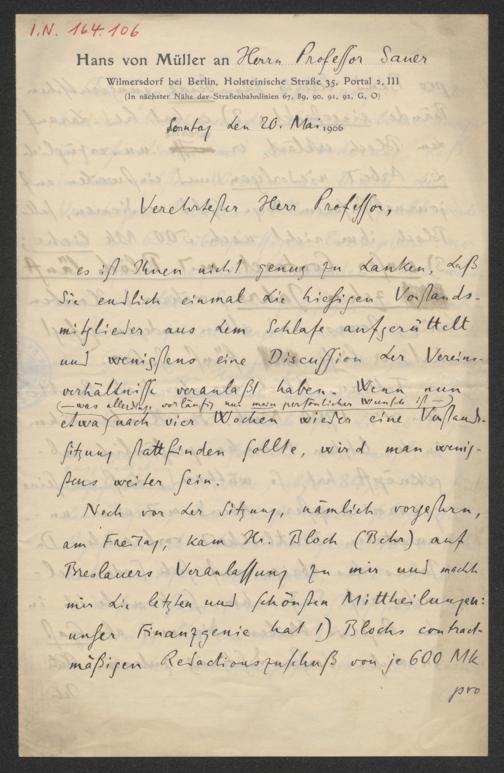 I.N. 164.106
Hans von Müller an Herrn Professor Sauer
Wilmersdorf bei Berlin, Holsteinische Straße 35, Portal 2, III
(In nächster Nähe der Straßenbahnlinien 67, 89, 90, 91, 92, G, O)
Sonntag den 20. Mai 1906
Verehrtester Herr Professor,
es ist Ihnen nicht genug zu danken, daß
Sie endlich einmal die hiesigen Vorstands-
mitglieder aus dem Schlafe aufgerüttelt
und wenigstens eine Discussion der Vereins-
verhältnisse veranlaßt haben. Wenn nun
(— was allerdgs. vorläufig nur mein persönlicher Wunsch ist —)
etwa nach vier Wochen wieder eine Vorstands-
sitzung stattfinden sollte, wird man wenig-
stens weiter sein.
Noch vor der Sitzung, nämlich vorgestern,
am Freitag, kam Hr. Bloch (Behr) auf
Breslauers Veranlassung zu mir und macht
mir die letzten und schönsten Mittheilungen:
unser Finanzgenie hat 1) Blochs contract-
mäßigen Redactionszuschuß von je 600 Mk
pro